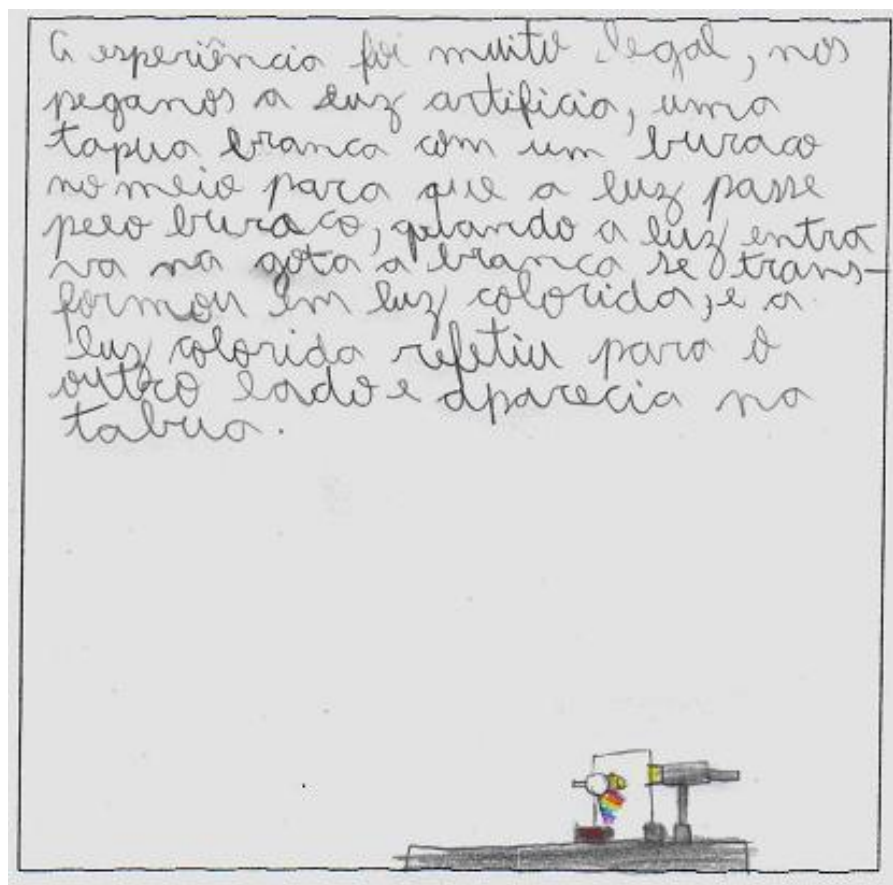 A esperiência foi muito legal, nós
pegamos a luz artificia, uma
tapua branca com um buraco
no meio para que a luz passe
pelo buraco, quando a luz entra
va na gota a branca se trans-
formou em luz colorida, e a
luz colorida refetiu para o
outro lado e aparecia na
tabua.